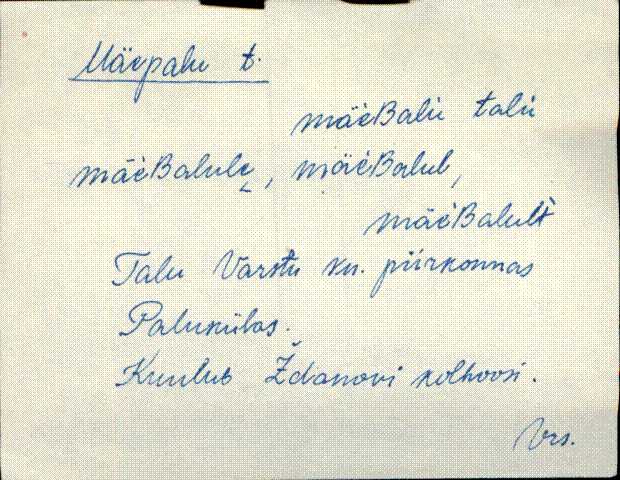 Mäepalu t.
mäèBalu talu
mäèBalule, mäèBalul,
mäèBalult
Talu Varstu kn. piirkonnas
Palukülas.
Kuulub Ždanovi kolhoosi.
Vrs.